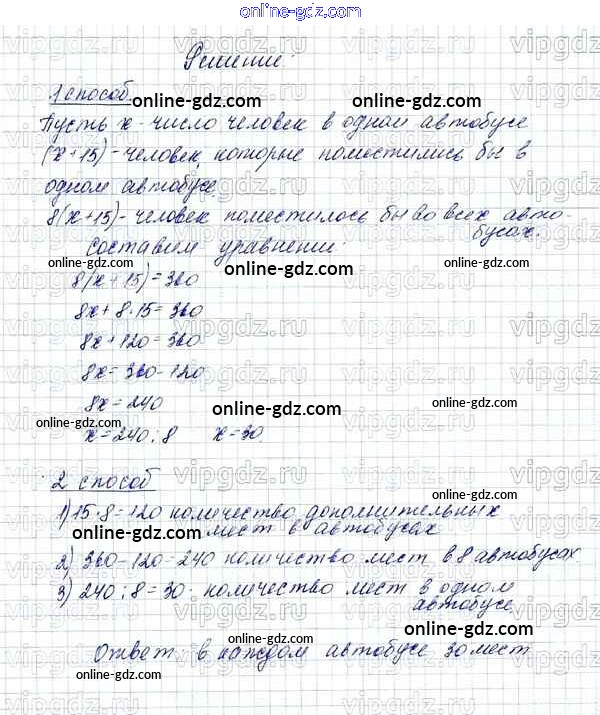 online-gdz.com
Решение:
1 способ.
online-gdz.com
online-gdz.com
Пусть x - число человек в одном автобусе
(x+15) - человек, которые поместились бы в
одном автобусе.
8(x+15) - человек поместилось бы во всех авто-
бусах.
составим уравнение:
online-gdz.com
online-gdz.com
online-gdz.com
8(x+15)=360
8x+8·15=360
8x+120=360
8x=360-120
8x=240
online-gdz.com
online-gdz.com
online-gdz.com
x=240:8 x=30.
2 способ
online-gdz.com
1) 15·8=120 количество дополнительных
мест в автобусах
online-gdz.com
2) 360-120=240 количество мест в 8 автобусах
3) 240:8=30. количество мест в одном
автобусе
online-gdz.com
Ответ: в каждом автобусе 30 мест
online-gdz.com
online-gdz.com
online-gdz.com
vipgdz.ru